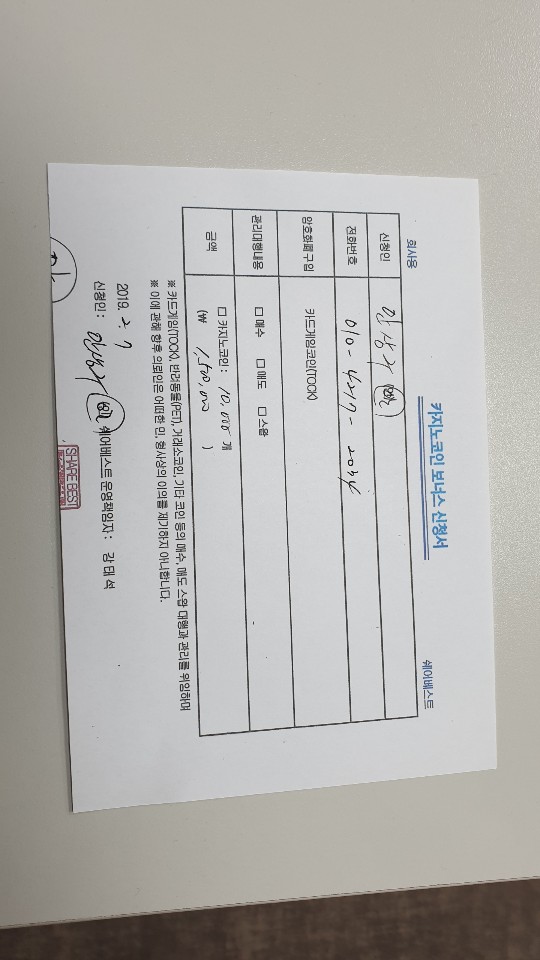 카지노코인 보너스 신청서
회사용
쉐어베스트
신청인 안상구
전화번호 010-4217-2034
암호화폐구입 카드게임코인(TOCK)
관리대행내용 □ 매수 □ 매도 □ 스왑
금액 □ 카지노코인 : 10,000 개
(₩ 1,500,000 )
※ 카드게임(TOCK), 반려동물(PET), 거래소코인, 기타 코인 등의 매수, 매도 스왑 대행과 관리를 위임하며
※ 이에 관해 향후 의뢰인은 어떠한 민, 형사상의 이의를 제기하지 아니합니다.
2019. 2. 7
신청인 : 안상구 쉐어베스트 운영책임자 : 강 태 석
SHARE BEST